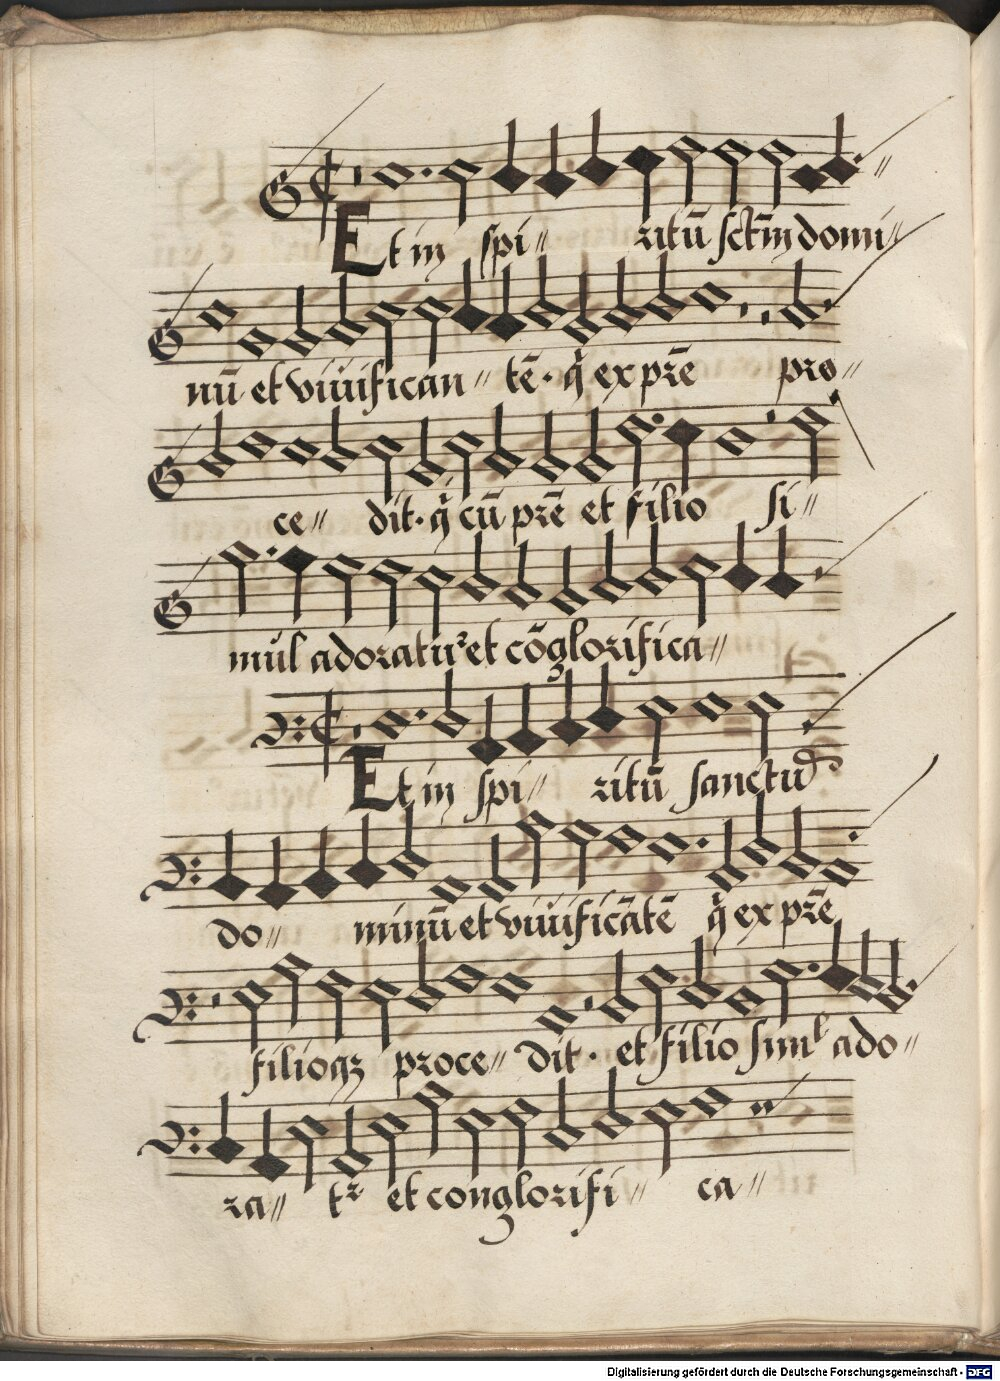 Et in spi〃 ritū sctm̄ in domi〃
nū et viuifican〃 tē · q̄ ex pr̄e pro〃
ce〃 dit · q̄ cū pr̄e et filio si〃
mul adoratur et cōglorifica〃
Et in spi〃 ritū sanctū
do〃 minū et viuificātē q̄ ex pr̄e
filioqꝫ proce〃 dit · et filio simˡ ado〃
ra〃 tr et conglorifi〃 ca〃
Digitalisierung gefördert durch die Deutsche Forschungsgemeinschaft - DFG